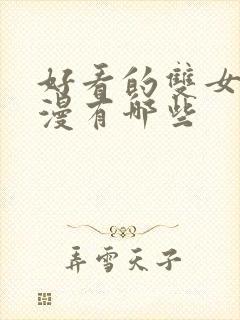 好看的雙女
漫有哪些
弄雪天子